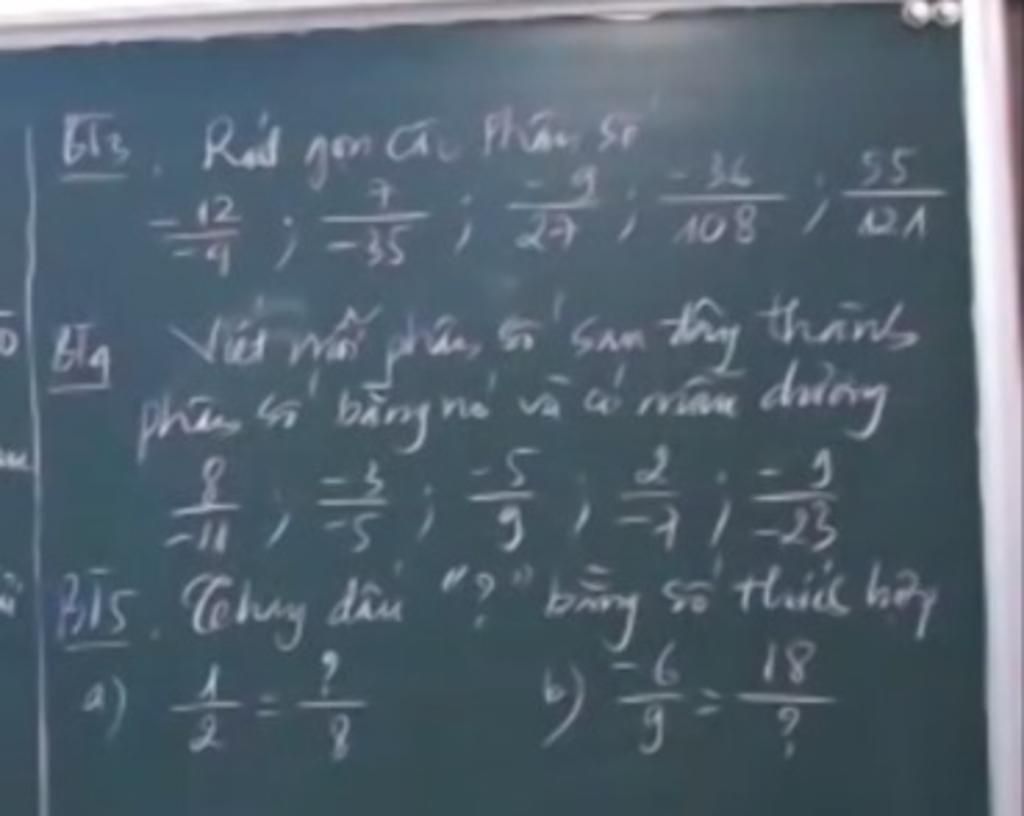 BT3. Rút gọn các phân số
-12/-4 ; 7/-35 ; -9/27 ; -36/108 ; 55/121
BT4 Viết mỗi phân số sau đây thành
phân số bằng nó và có mẫu dương
8/-11 ; -3/-5 ; -5/9 ; 2/-7 ; -9/-23
BT5. Thay dấu "?" bằng số thích hợp
a) 1/2 = ?/8 b) -6/9 = 18/?